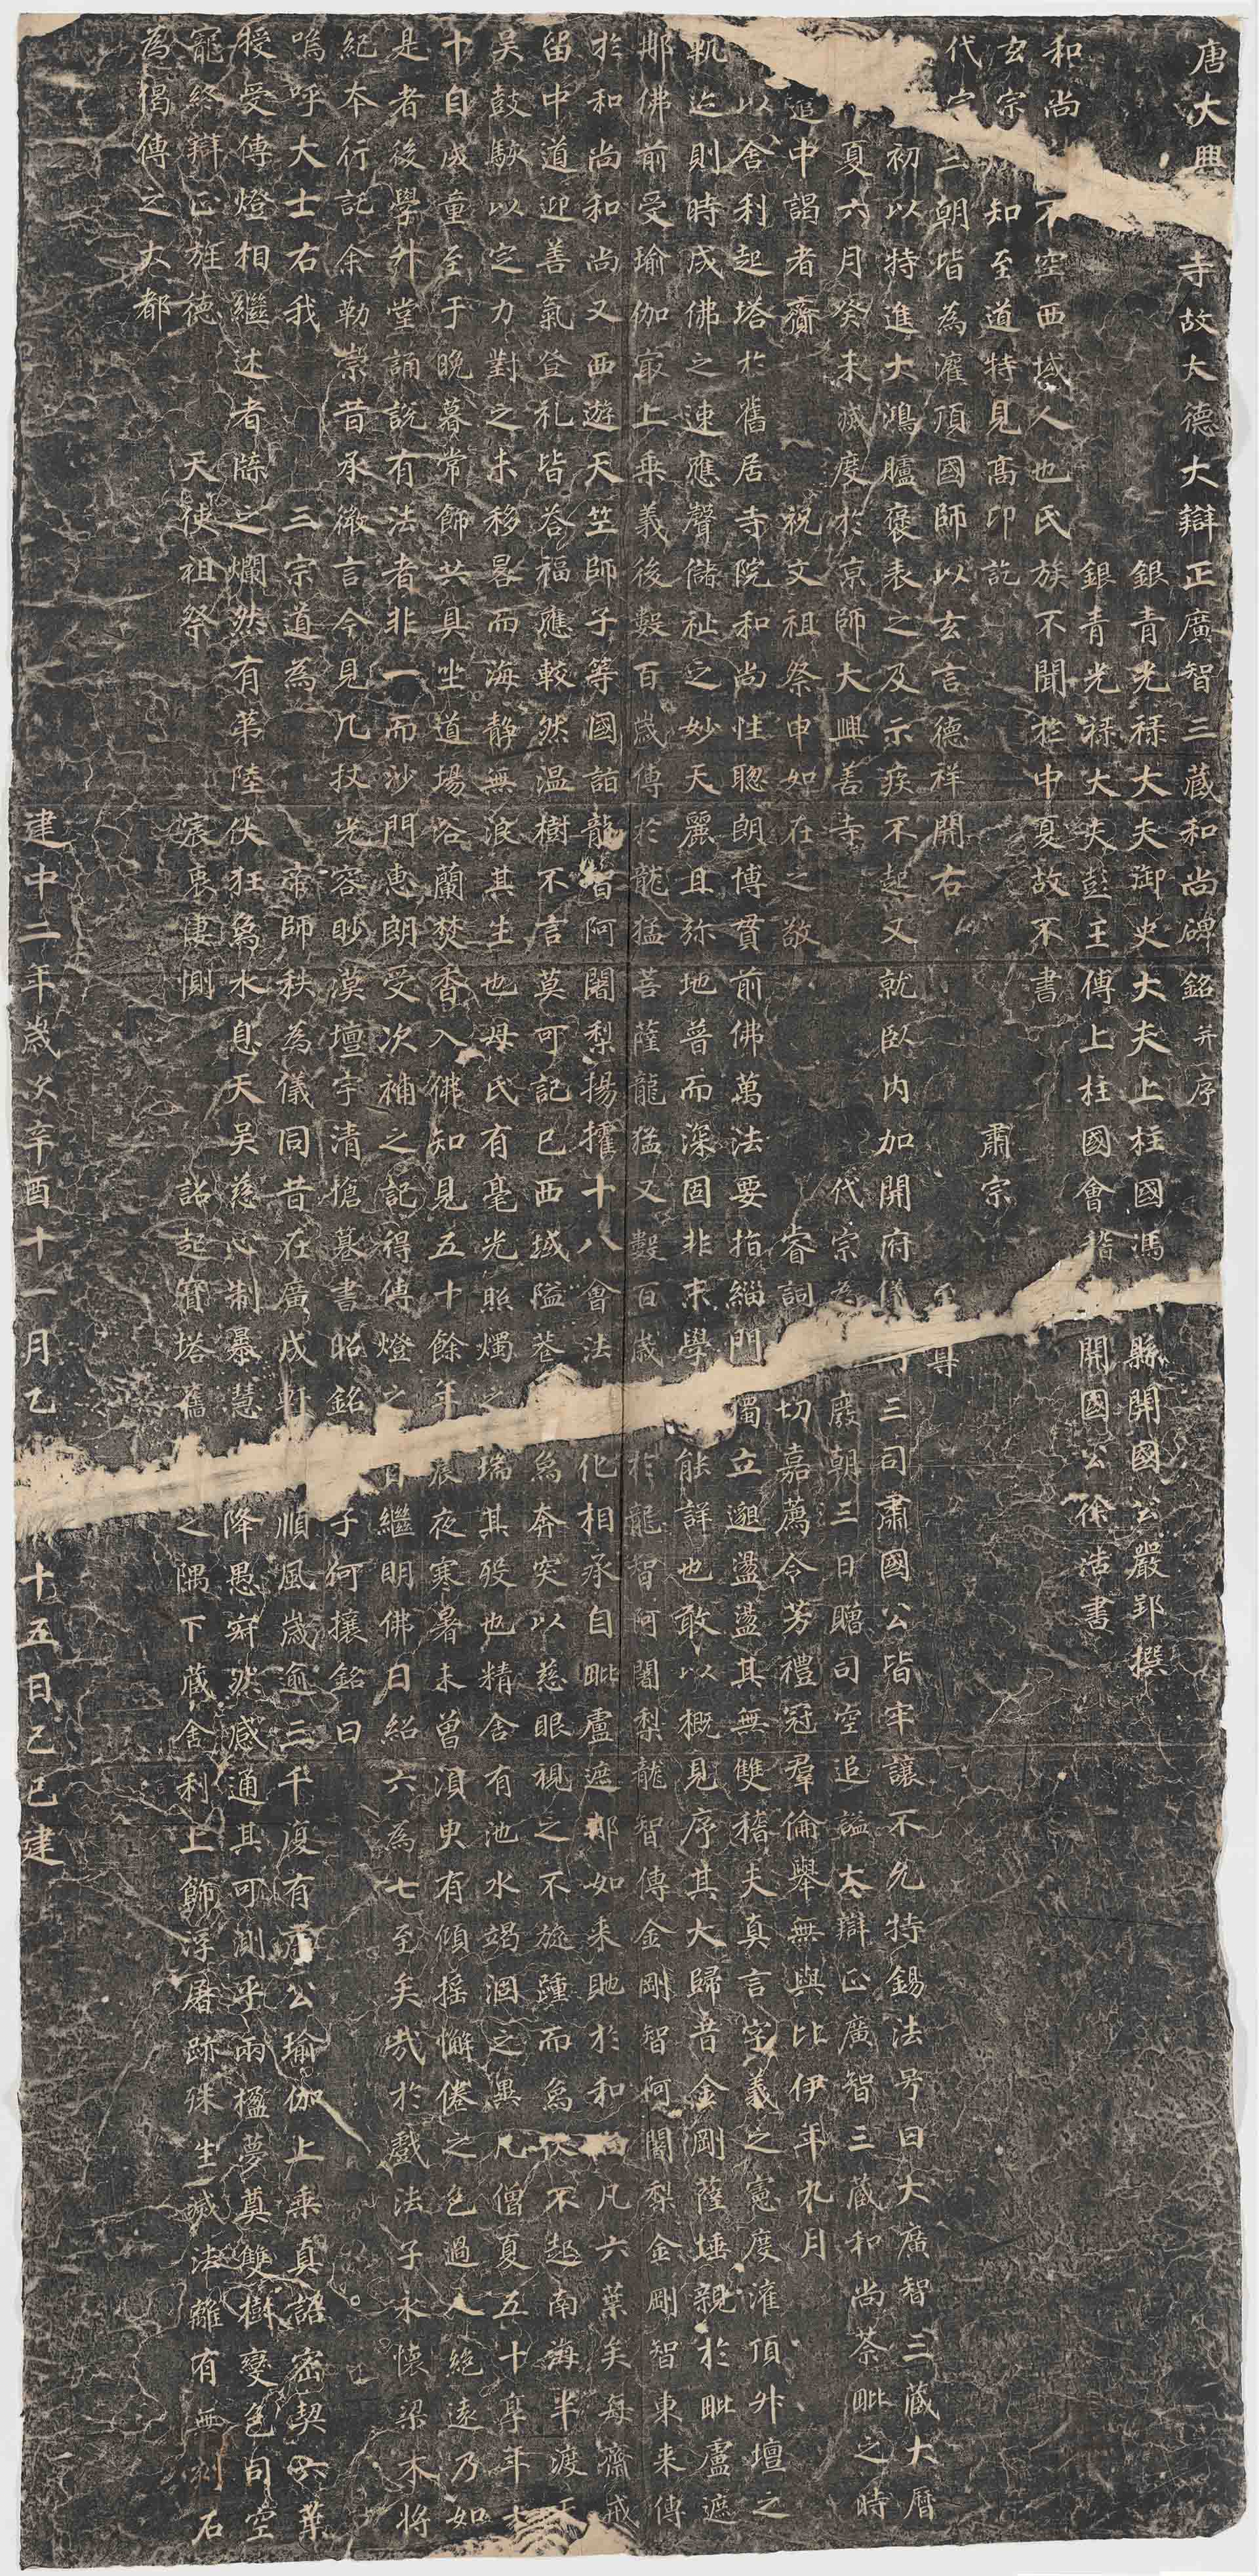 唐大興寺故大德大辯正廣智三藏和尚碑銘并序
銀青光祿大夫御史大夫上柱國馮縣開國公嚴郢撰
銀青光祿大夫彭王傅上柱國會稽開國公徐浩書
和尚不空西域人也氏族不聞於中夏故不書
玄宗知至道特見高卬訖肅宗
代宗三朝皆為灌頂國師以玄言德祥開右至尊
初以特進大鴻臚褒表之及示疾不起又就臥內加開府儀同三司肅國公皆牢讓不允特錫法号曰大廣智三藏大曆
夏六月癸未滅度於京師大興善寺代宗為廢朝三日贈司空追謚大辯正廣智三藏和尚荼毗之時
追中謁者齎祝文祖祭申如在之敬睿詞切嘉薦令芳禮冠羣倫舉無與比伊年九月
以舍利起塔於舊居寺院和尚性聰朗博貫前佛萬法要指緇門獨立邈盪盪其無雙稽夫真言字義之憲度灌頂升壇之
軌迹則時成佛之速應聲儲祉之妙天麗且弥地普而深固非末學能詳也敢以概見序其大歸昔金剛薩埵親於毗盧遮
那佛前受瑜伽最上乘義後數百歲傳於龍猛菩薩龍猛又數百歲於龍智阿闍梨龍智傳金剛智阿闍梨金剛智東來傳
於和尚和尚又西遊天竺師子等國詣龍智阿闍梨揚攉十八會法化相承自毗盧遮那如來貤於和凡六葉矣每齋戒
留中道迎善氣登礼皆荅福應較然温樹不言莫可記已西域隘巷為奔突以慈眼視之不旋踵而象伏不起南海半渡
吴鼓駭以定力對之未移晷而海靜無浪其生也母氏有毫光照燭之瑞其歿也精舍有池水竭涸之異凡僧夏五十享年七
十自成童至于晚暮常飾共具坐道場浴蘭焚香入佛知見五十餘年晨夜寒暑未曾湏臾有傾摇懈倦之色過人絶遠乃如
是者後學升堂誦說有法者非一而沙門惠朗受次補之記得傳燈之旨繼明佛日紹六為七至矣哉於戲法子永懷梁木將
紀本行託余勒崇昔承微言今見几杖光容眇漠壇宇清愴纂書昭銘子何攘銘曰
嗚呼大士右我三宗道為帝師秩為儀同昔在廣成軒順風歲逾三千復有肅公瑜伽上乘真語密契六葉
授受傳燈相繼述者牒之爛然有第陸伏狂象水息天吴慈心制暴慧降愚寂然感通其可測乎兩楹夢奠雙樹變色司空
寵終辯正旌德天使祖祭宸衷悽惻詔起寶塔舊之隅下藏舍利上飾浮屠跡殊生滅法離有無石
為偈傳之大都
建中二年歲次辛酉十一月乙十五日己巳建